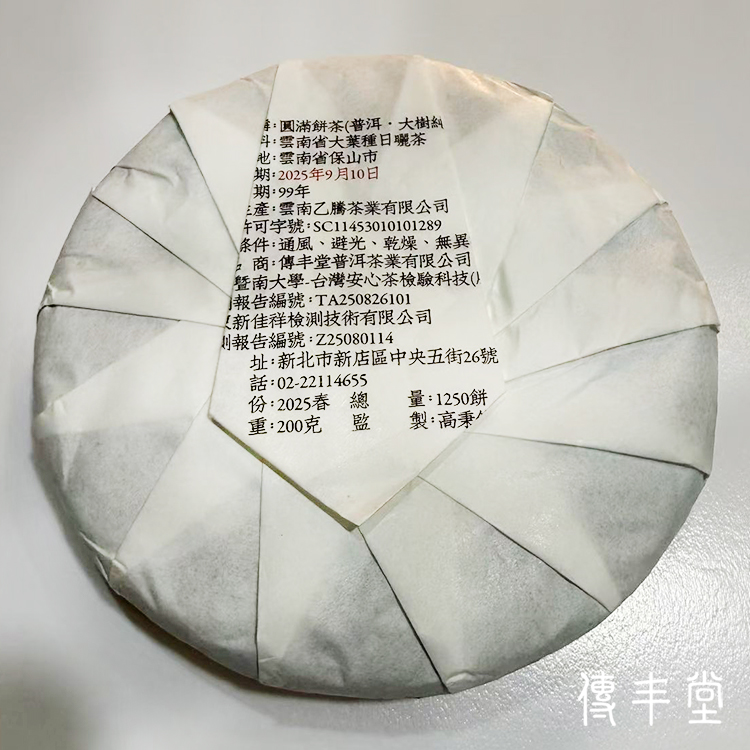 ：圓滿餅茶(普洱·大樹純
：雲南省大葉種日曬茶
：雲南省保山市
期：2025年9月10日
期：99年
生產：雲南乙騰茶業有限公司
許可字號：SC11453010101289
條件：通風、避光、乾燥、無異
商：傳丰堂普洱茶業有限公司
暨南大學-台灣安心茶檢驗科技(
報告編號：TA250826101
新佳祥檢測技術有限公司
報告編號：Z25080114
址：新北市新店區中央五街26號
話：02-22114655
份：2025春 總 量：1250餅
重：200克 監 製：高秉
傳丰堂